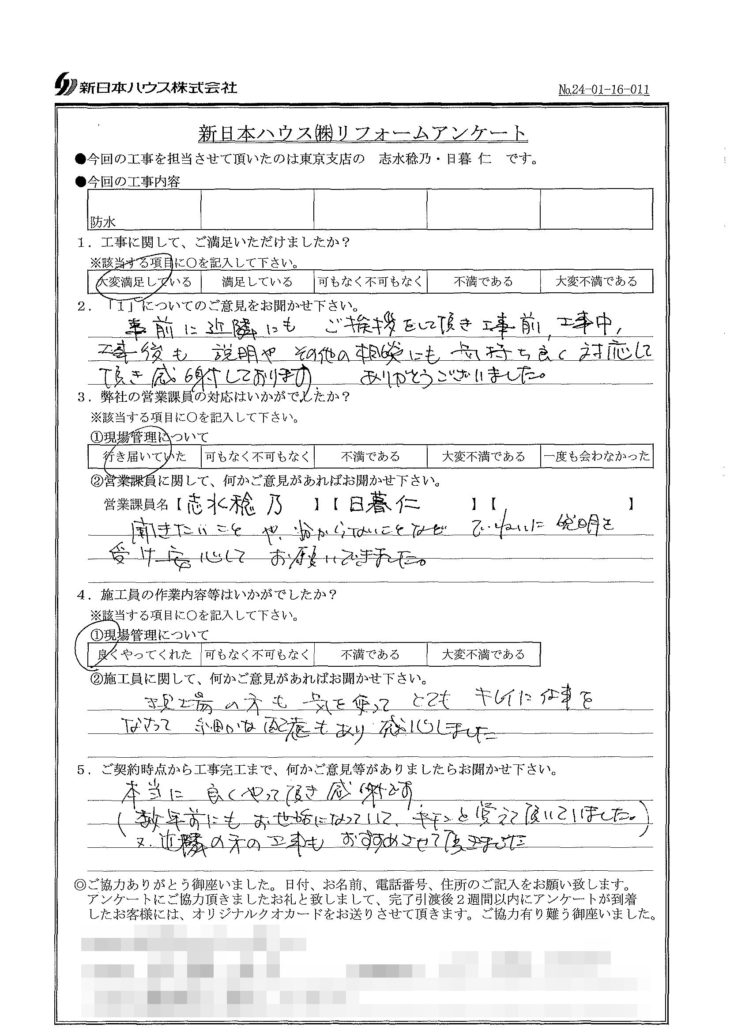 新日本ハウス株式会社
№24-01-16-011
新日本ハウス㈱リフォームアンケート
●今回の工事を担当させて頂いたのは東京支店の 志水稔乃・日暮 仁 です。
●今回の工事内容
防水
1．工事に関して、ご満足いただけましたか？
※該当する項目に○を記入して下さい。
大変満足している 満足している 可もなく不可もなく 不満である 大変不満である
2．「1」についてのご意見をお聞かせ下さい。
事前に近隣にも ご挨拶をして頂き工事前,工事中,
工事後も 説明や その他の相談にも 気持ち良く 対応して
頂き感謝しております ありがとうございました。
3．弊社の営業課員の対応はいかがでしたか？
※該当する項目に○を記入して下さい。
①現場管理について
行き届いていた 可もなく不可もなく 不満である 大変不満である 一度も会わなかった
②営業課員に関して、何かご意見があればお聞かせ下さい。
営業課員名【志水稔乃 】【日暮仁 】【 】
聞きたいこと や、分からないことなど ていねいに 説明を
受け安心して お願いできました。
4．施工員の作業内容等はいかがでしたか？
※該当する項目に○を記入して下さい。
①現場管理について
良くやってくれた 可もなく不可もなく 不満である 大変不満である
②施工員に関して、何かご意見があればお聞かせ下さい。
現場の方も 気を使って とても キレイに仕事を
なさって 細かな配慮もあり 感心しました
5．ご契約時点から工事完工まで、何かご意見等がありましたらお聞かせ下さい。
本当に 良くやって頂き 感謝です
(数年前にも お世話になっていて、キチンと覚えて頂いていました。)
又、近隣の方の工事も おすすめさせて頂きました
◎ご協力ありがとう御座いました。日付、お名前、電話番号、住所のご記入をお願い致します。
アンケートにご協力頂きましたお礼と致しまして、完了引渡後２週間以内にアンケートが到着
したお客様には、オリジナルクオカードをお送りさせて頂きます。ご協力有り難う御座いました。